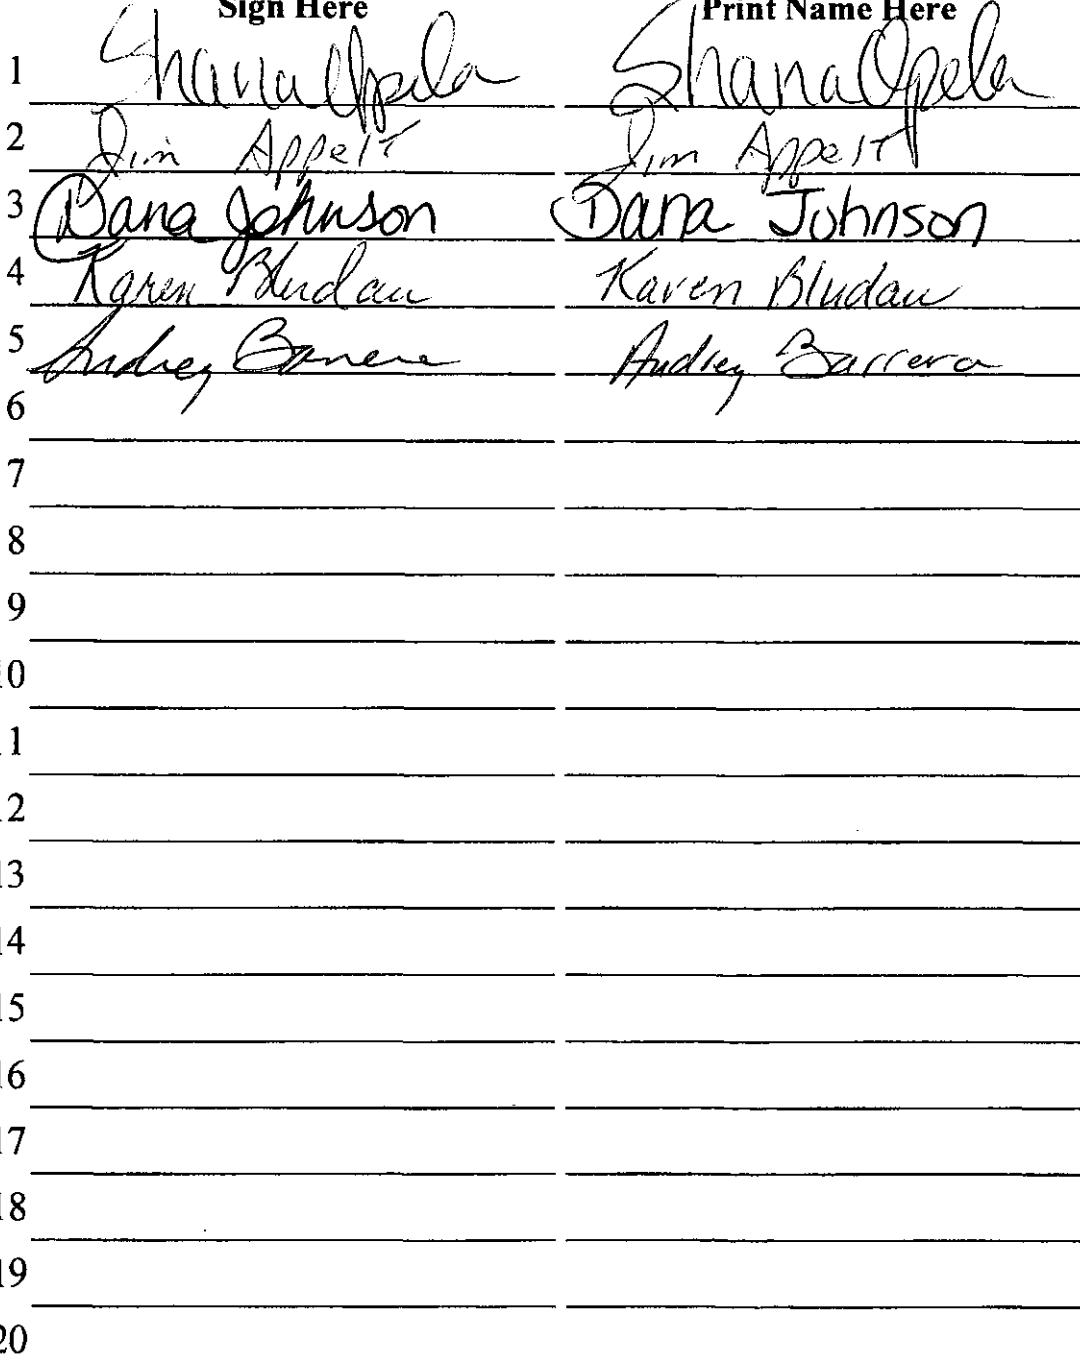 Sign Here Print Name Here
1 Shana Opela Shana Opela
2 Jim Appelt Jim Appelt
3 Dana Johnson Dana Johnson
4 Karen Bludau Karen Bludau
5 Audrey Barrera Audrey Barrera
6
7
8
9
10
11
12
13
14
15
16
17
18
19
20